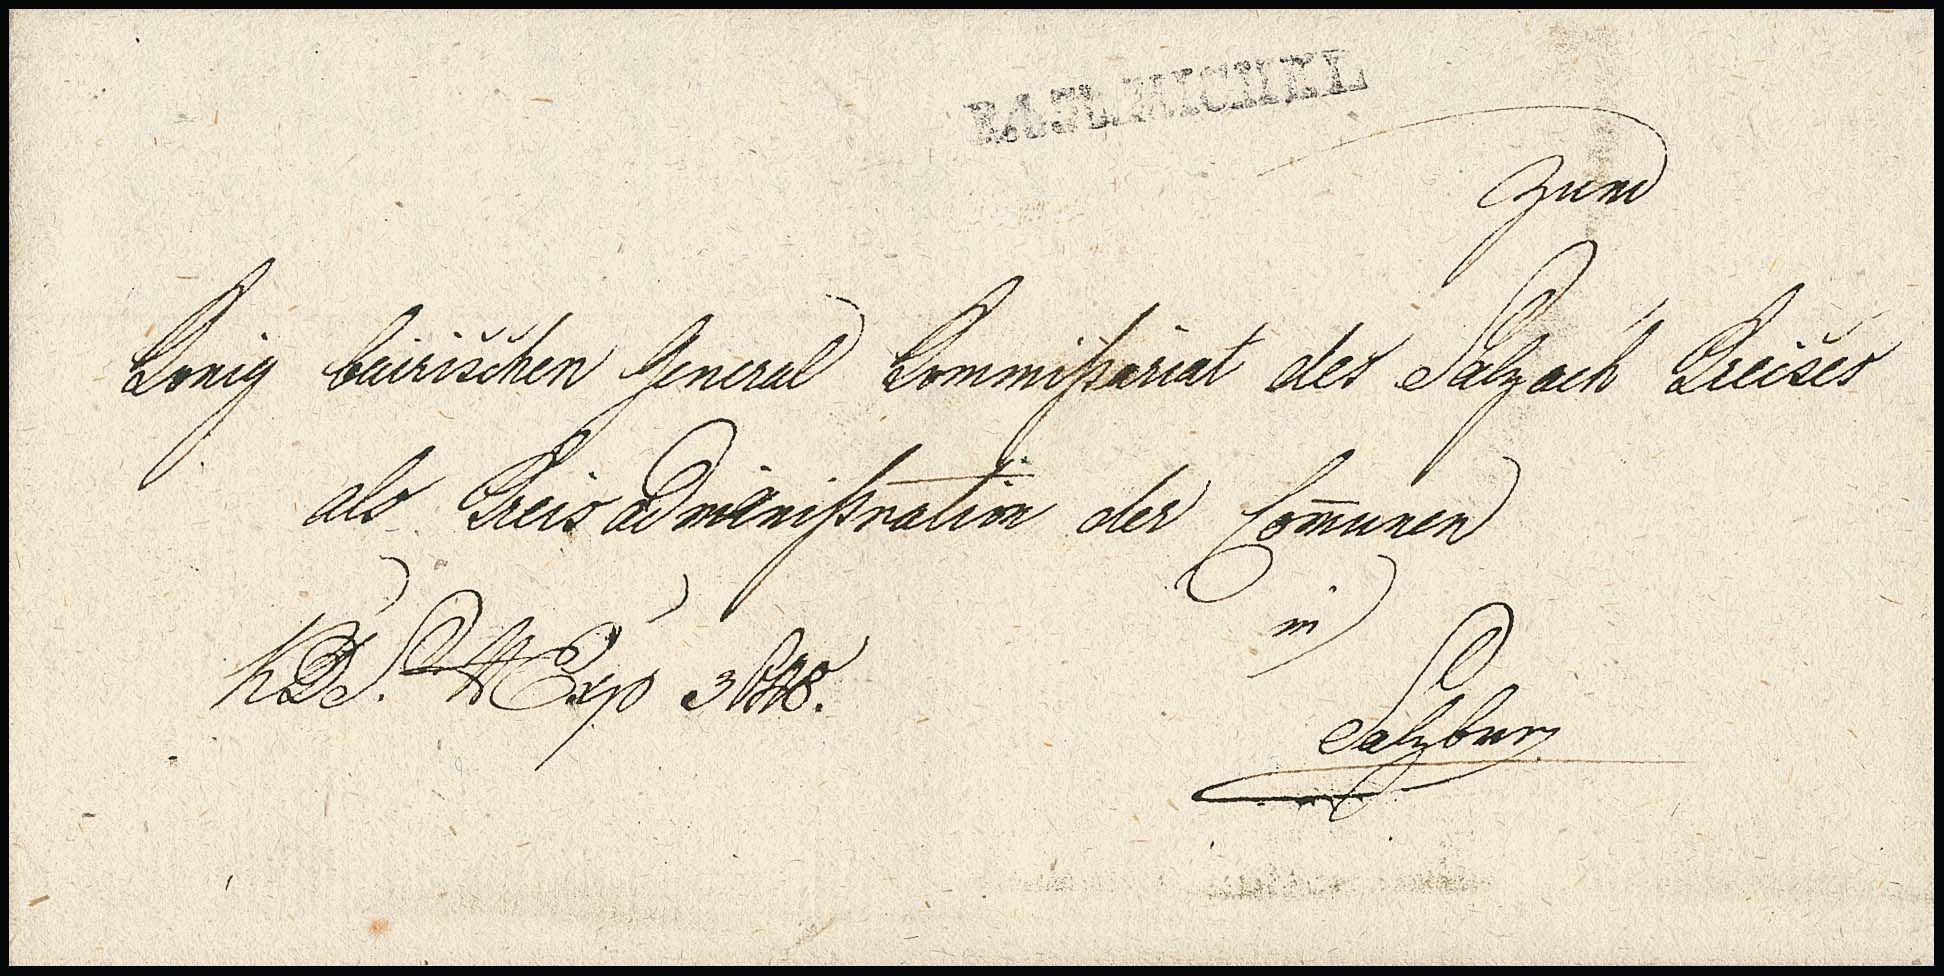 MICHEL
Zum
König bairischen General Commißariat des Salzach Kreises
als Kreisadministration der Com̄unen
in
Salzburg
Exp